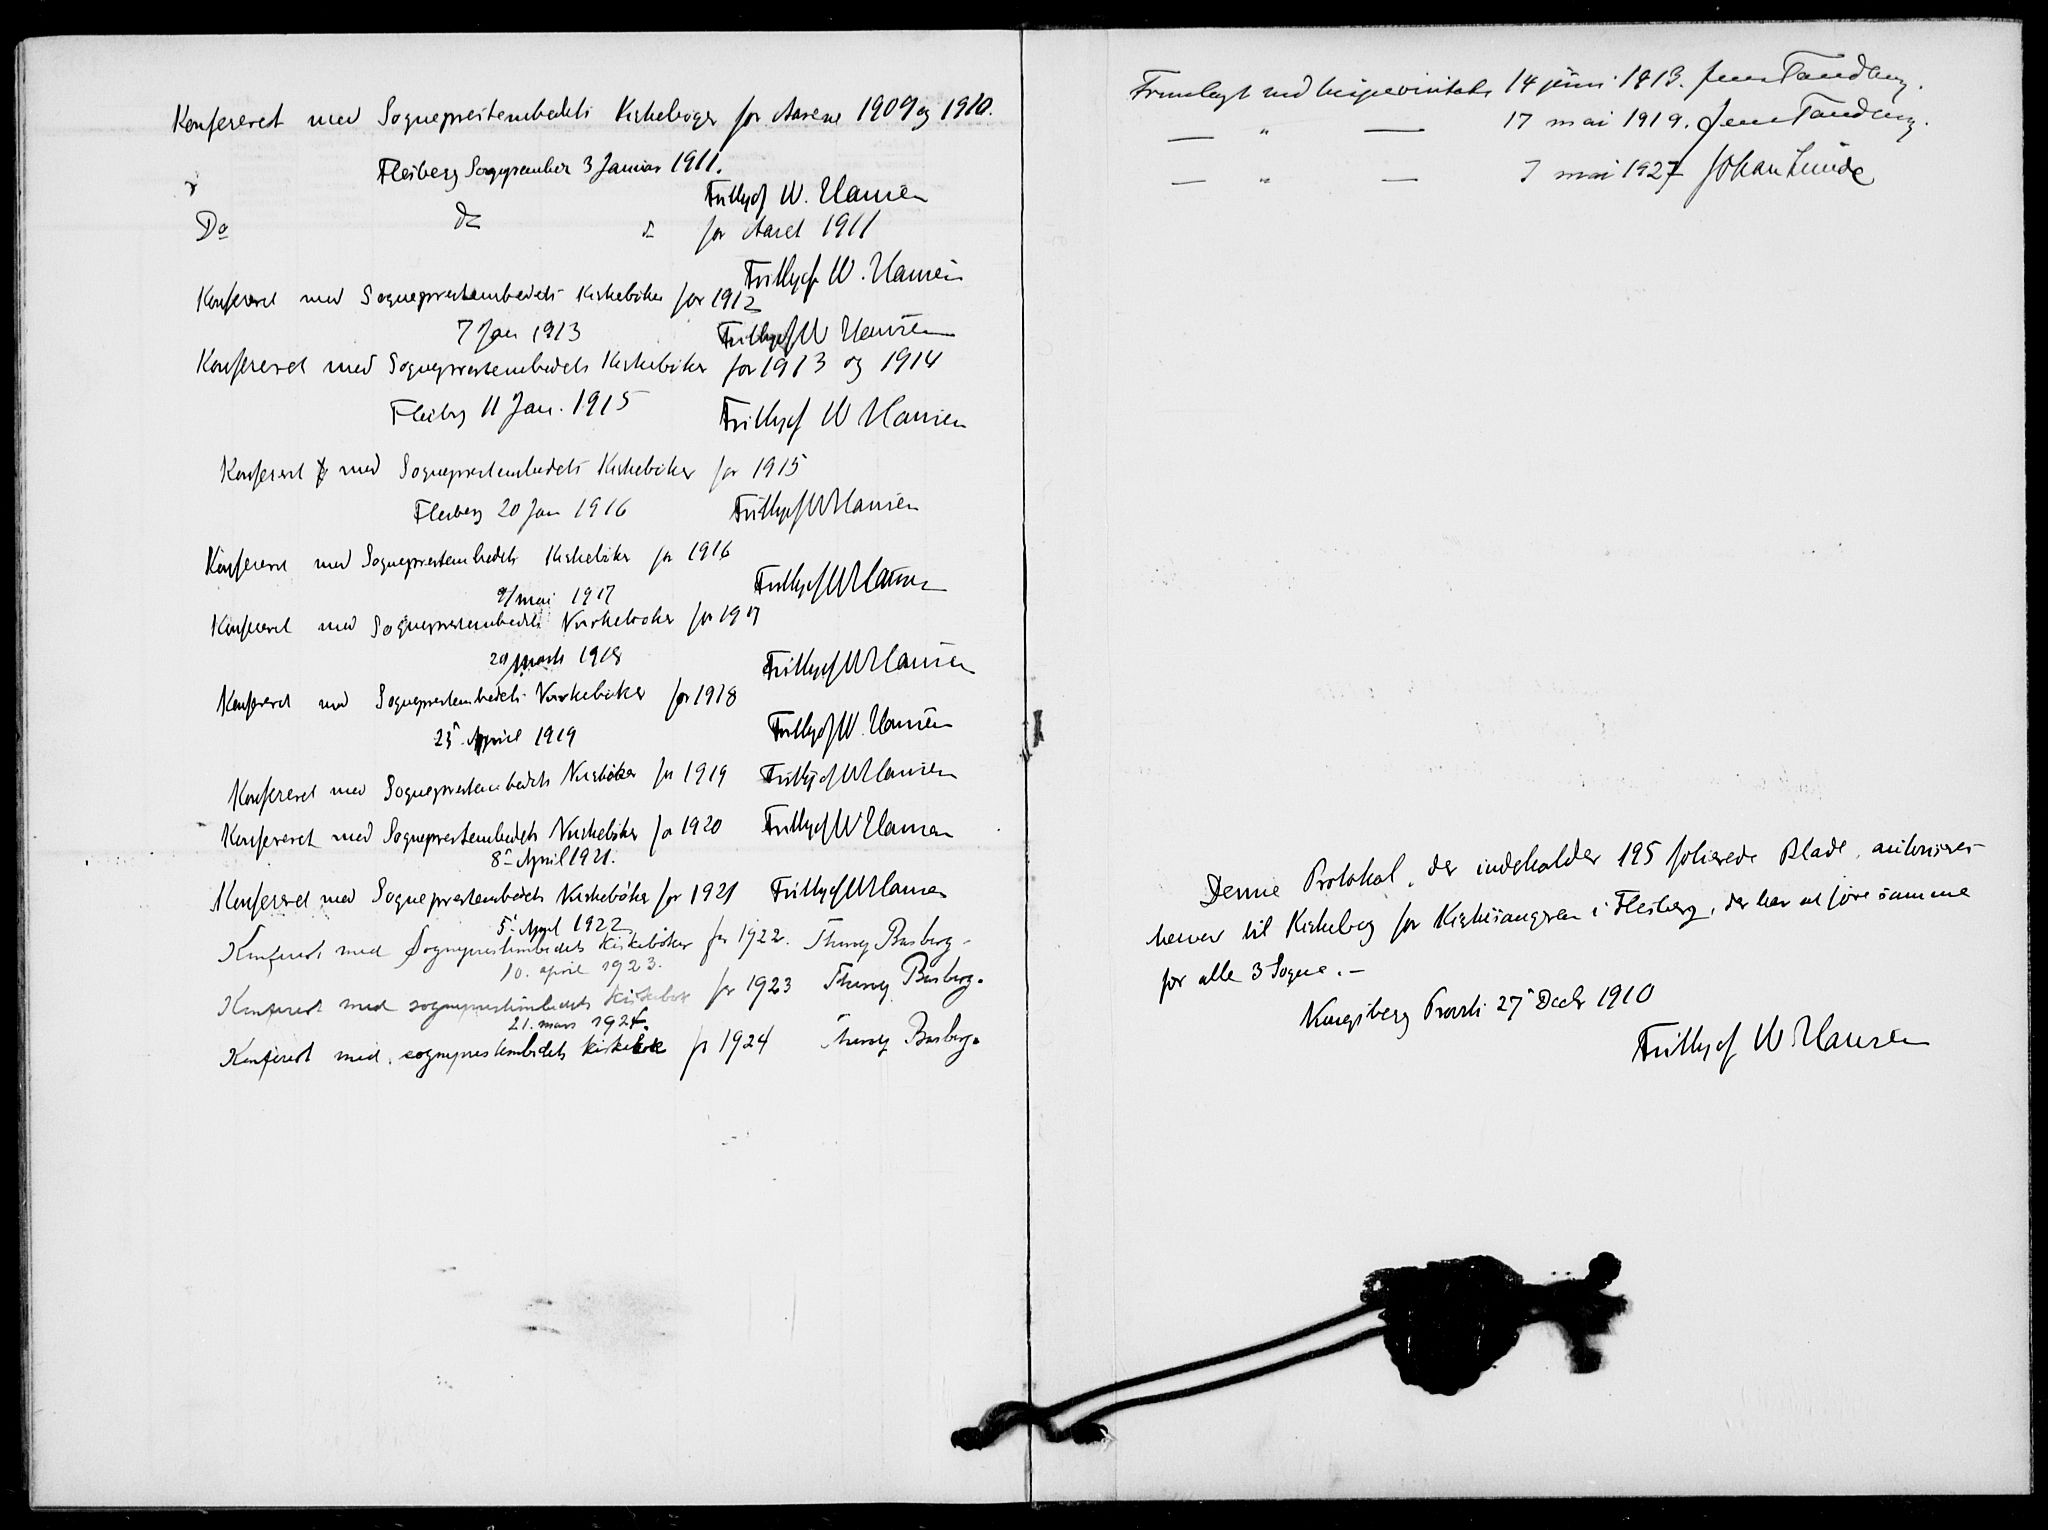 Konfereret med Sogneprestembedets Kirkebøger for Aarene 1909 og 1910.
Flesberg 3 Januar 1911.
Frithjof W. Hansen
Do do do for Aaret 1911
Frithjof W. Hansen
Konfereret med Sogneprestembedets Kirkebøker for 1912
7 Jan 1913 Frithjof W Hansen
Konfereret med Sogneprestembedets Kirkebøker for 1913 og 1914
Flesberg 11 Jan. 1915 Frithjof W Hansen
Konfereret med Sogneprestembedets Kirkebøker for 1915
Flesberg 20 Jan 1916 Frithjof W Hansen
Konfereret med Sogneprestembedets Kirkebøker for 1916
9/mai 1917 Frithjof W Hansen
Konfereret med Sogneprestembedets Kirkebøker for 1917
20/marts 1918 Frithjof W Hansen
Konfereret med Sogneprestembedets Kirkebøker for 1918
25 April 1919 Frithjof W. Hansen
Konfereret med Sogneprestembedets Kirkebøker for 1919 Frithjof W Hansen
Konfereret med Sogneprestembedets Kirkebøker for 1920 Frithjof W Hansen
8 April 1921.
Konfereret med Sogneprestembedets Kirkebøker for 1921 Frithjof W Hansen
5 April 1922
Konferert med Sogneprestembedets Kirkebøker for 1922. Busberg.
10. april 1923.
Konferert med sogneprestembedets kirkebok for 1923 Busberg.
21. mars 1924.
Konferert med sogneprestembedets kirkebok for 1924 Busberg.
Fremlagt ved bispevisitats 14 juni 1913. Jens Tandberg.
— " — 17 mai 1919. Jens Tandberg.
— " — 7 mai 1927 Johan Lunde
Denne Protokol, der indeholder 195 folierede Blade, autoriseres
herved til Kirkebog for Kirkesangeren i Flesberg, der har at føre samme
for alle 3 Sogne. —
Kongsberg Provsti 27 Decbr 1910
Frithjof W. Hansen